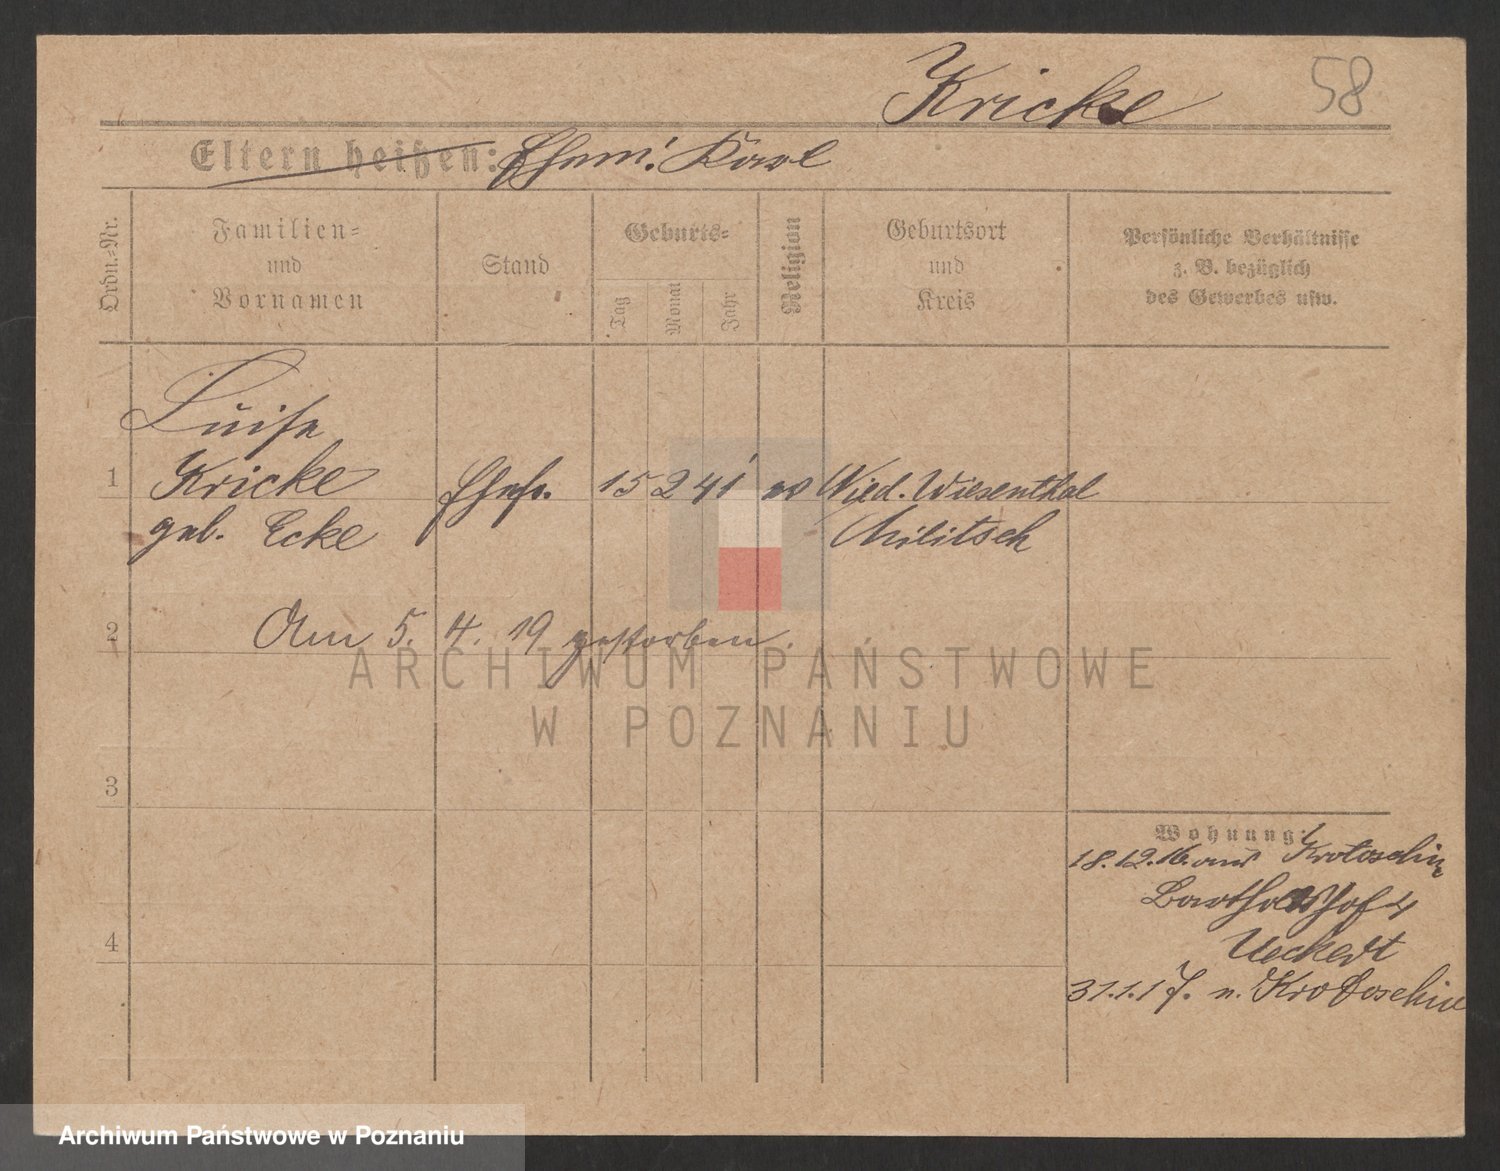 Kricke 58
Eltern heißen: Ehem: Karl
Ordn.-Nr.
Familien-
und
Vornamen
Stand
Geburts-
Tag
Monat
Jahr
Religion
Geburtsort
und
Kreis
Persönliche Verhältnisse
z. B. bezüglich
des Gewerbes usw.
Luise
1 Kricke Ehefr. 15 2 41 ev Nied. Wiesenthal
geb. Ecke Militsch
2 Am 5. 4. 19 gestorben.
3
4
Wohnung:
18.12.16. aus Krotoschin
4
Ueckert
31.1.17. n. Krotoschin
ARCHIWUM PAŃSTWOWE
W POZNANIU
Archiwum Państwowe w Poznaniu